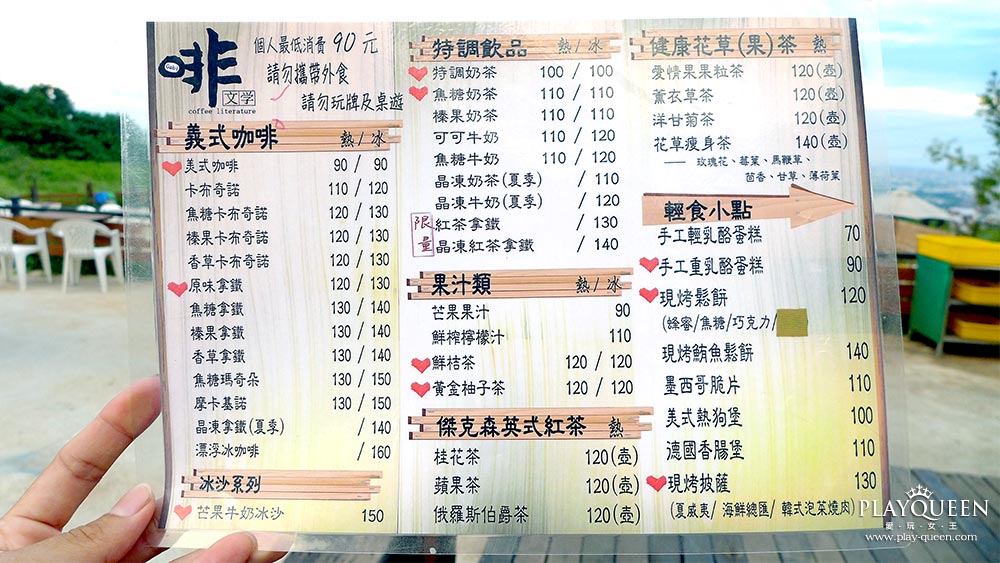 啡
Gabee
文学
coffee literature
個人最低消費 90 元
請勿攜帶外食
請勿玩牌及桌遊
義式咖啡 熱/冰
美式咖啡 90 / 90
卡布奇諾 110 / 120
焦糖卡布奇諾 120 / 130
榛果卡布奇諾 120 / 130
香草卡布奇諾 120 / 130
原味拿鐵 120 / 130
焦糖拿鐵 130 / 140
榛果拿鐵 130 / 140
香草拿鐵 130 / 140
焦糖瑪奇朵 130 / 150
摩卡基諾 130 / 150
晶凍拿鐵(夏季) / 140
漂浮冰咖啡 / 160
冰沙系列
芒果牛奶冰沙 150
特調飲品 熱/冰
特調奶茶 100 / 100
焦糖奶茶 110 / 110
榛果奶茶 110 / 110
可可牛奶 110 / 110
焦糖牛奶 110 / 120
晶凍奶茶(夏季) / 110
晶凍牛奶(夏季) / 120
限量
紅茶拿鐵 / 130
晶凍紅茶拿鐵 / 140
果汁類 熱/冰
芒果果汁 90
鮮榨檸檬汁 110
鮮桔茶 120 / 120
黃金柚子茶 120 / 120
傑克森英式紅茶 熱
桂花茶 120(壺)
蘋果茶 120(壺)
俄羅斯伯爵茶 120(壺)
健康花草(果)茶 熱
愛情果果粒茶 120(壺)
薰衣草茶 120(壺)
洋甘菊茶 120(壺)
花草瘦身茶 140(壺)
—— 玫瑰花、莓葉、馬鞭草、
茴香、甘草、薄荷葉
輕食小點
手工輕乳酪蛋糕 70
手工重乳酪蛋糕 90
現烤鬆餅 120
(蜂蜜/焦糖/巧克力/
現烤鮪魚鬆餅 140
墨西哥脆片 110
美式熱狗堡 100
德國香腸堡 110
現烤披薩 130
(夏威夷/ 海鮮總匯/ 韓式泡菜燒肉)
PLAYQUEEN
愛·玩·女·王
www.play-queen.com